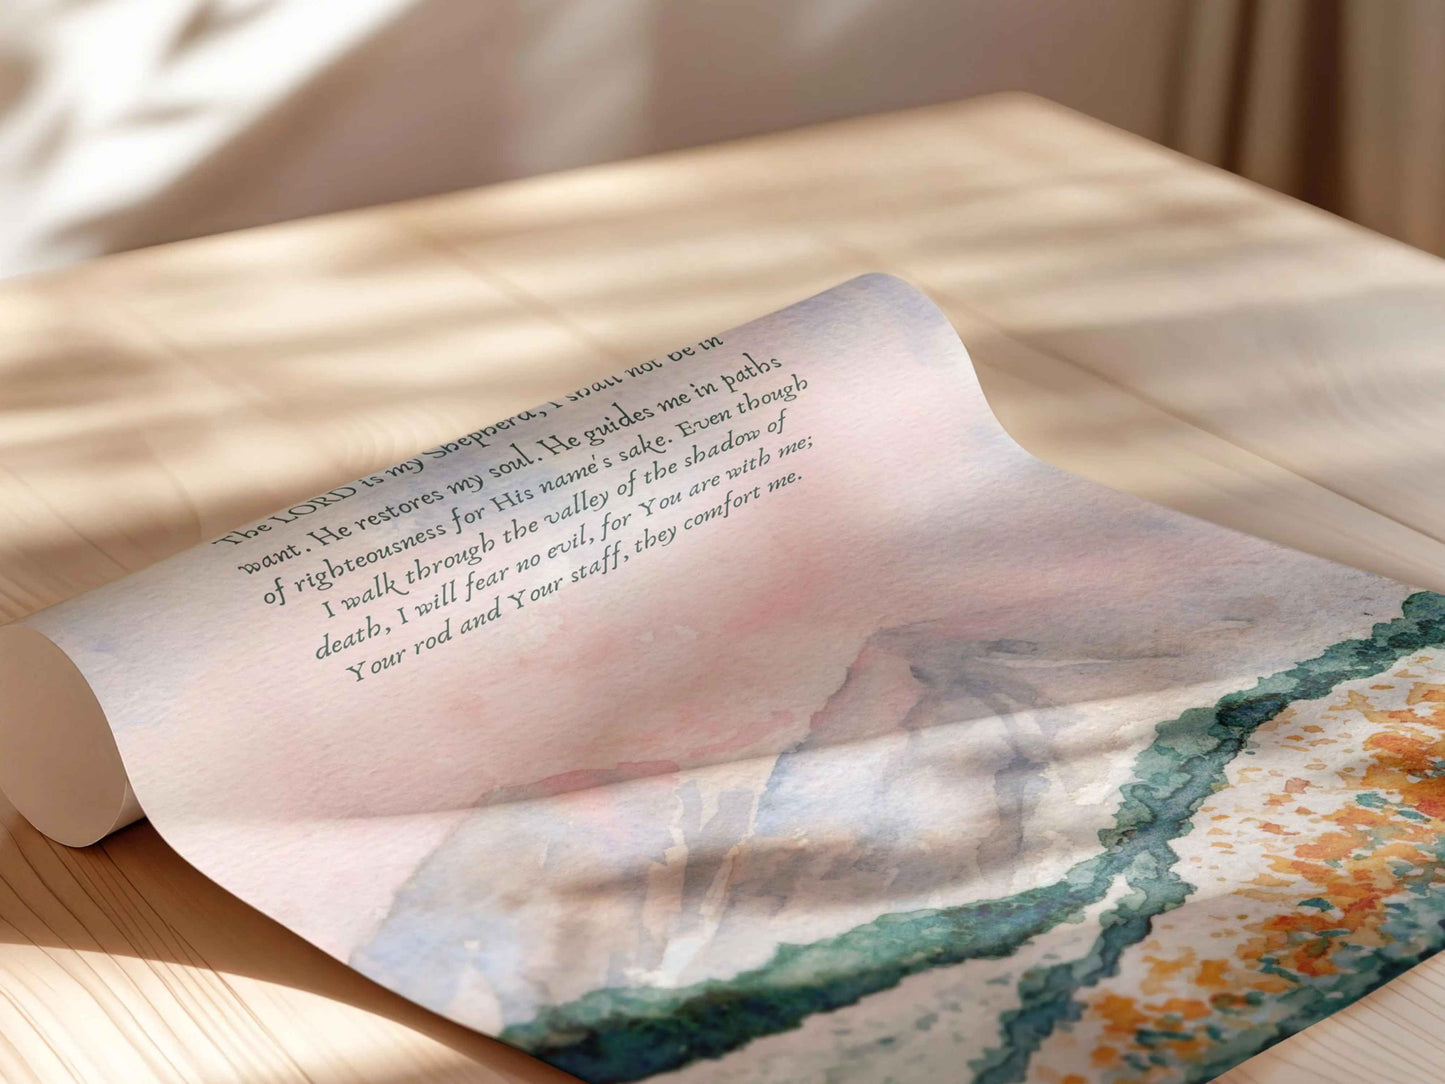 The LORD is my Shepherd, I shall not be in
want. He restores my soul. He guides me in paths
of righteousness for His name's sake. Even though
I walk through the valley of the shadow of
death, I will fear no evil, for You are with me;
Your rod and Your staff, they comfort me.